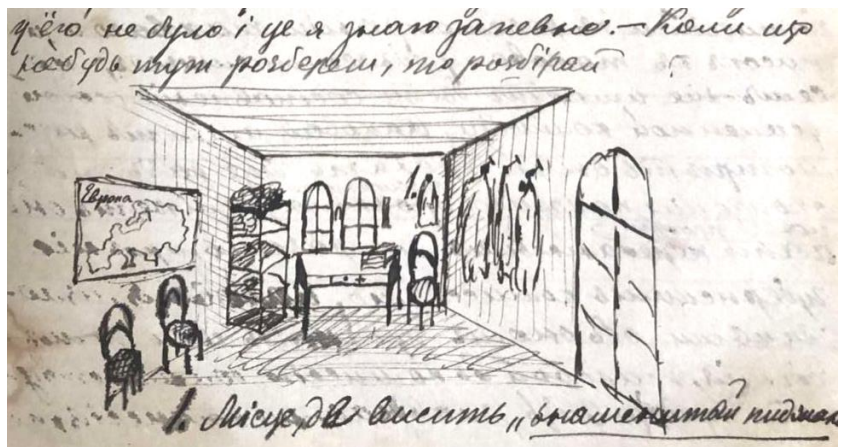 у его не було і це я знаю запевно. – Коли що
небудь тут розбереш, то розбірай
Європа
1.
1. Місце, де висить „знаменитий пиджак